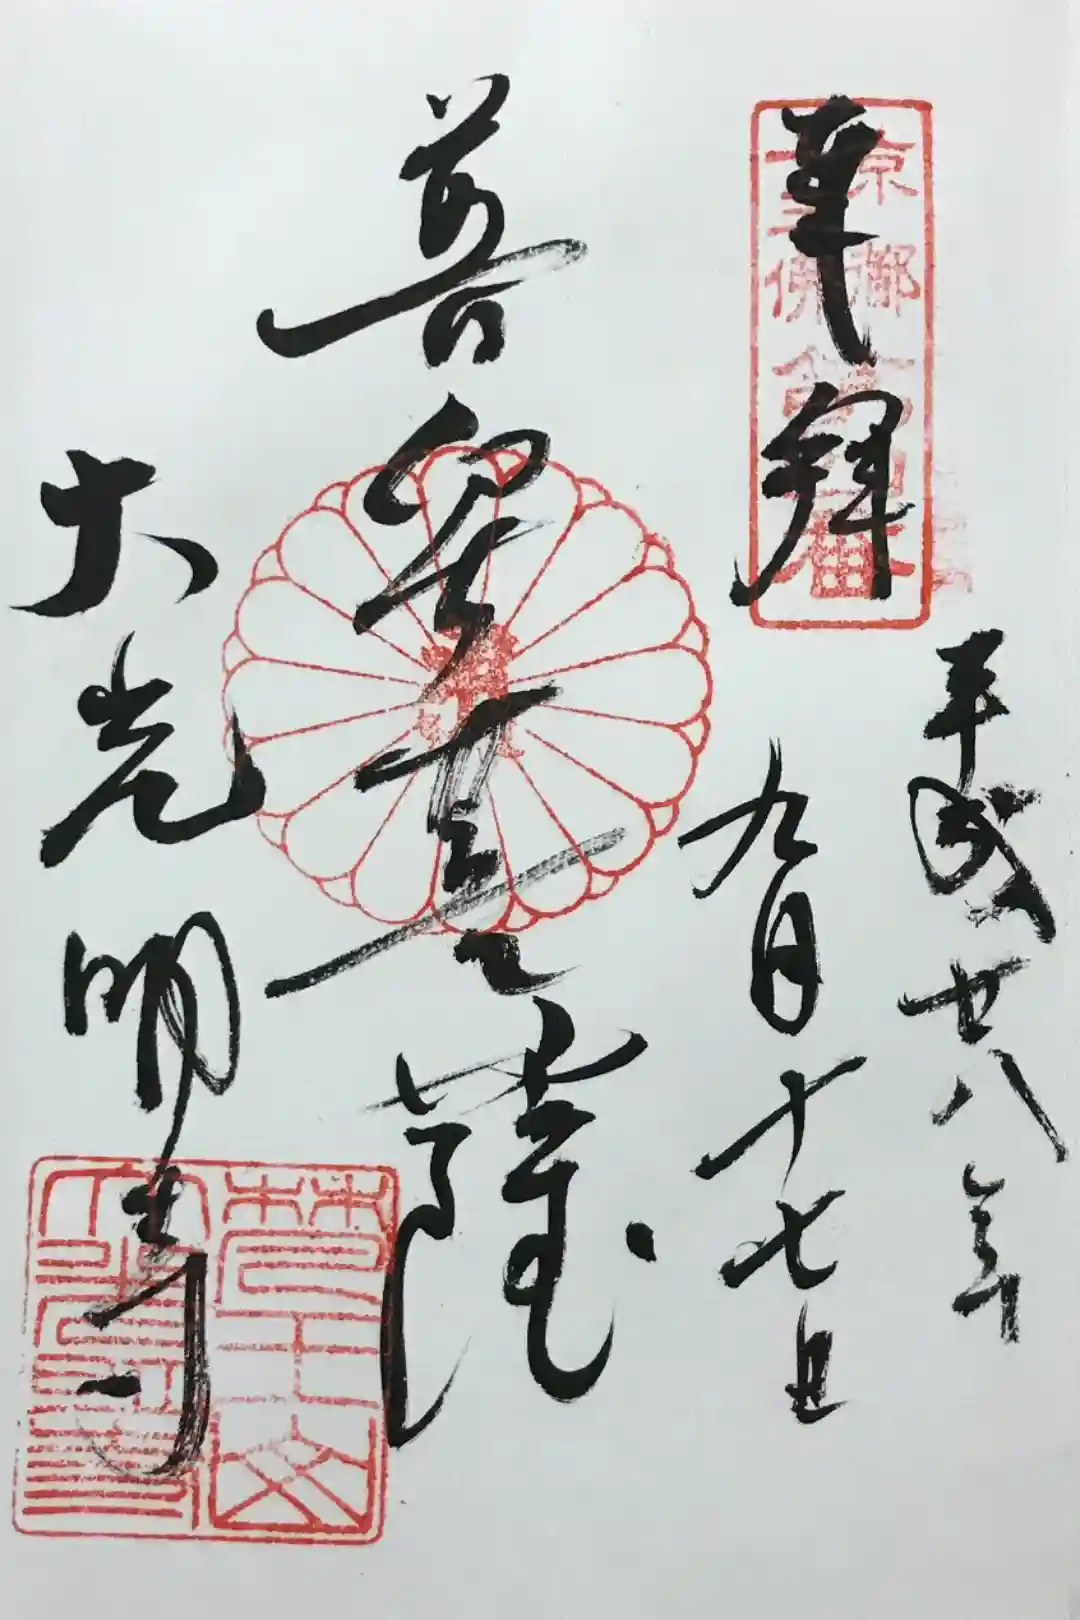 平成廿八年
九月十七日
奉拝
京都
十三佛
番
普賢菩薩
大光明寺